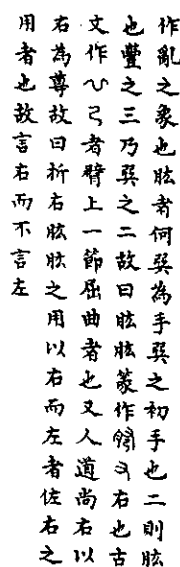 作亂之象也肱者何巽為手巽之初手也二則肱
也豐之三乃巽之二故曰肱肱篆作右也古
文作乁弓者臂上一節屈曲者也又人道尚右以
右為尊故曰折右肱肱之用以右而左者佐右之
用者也故言右而不言左